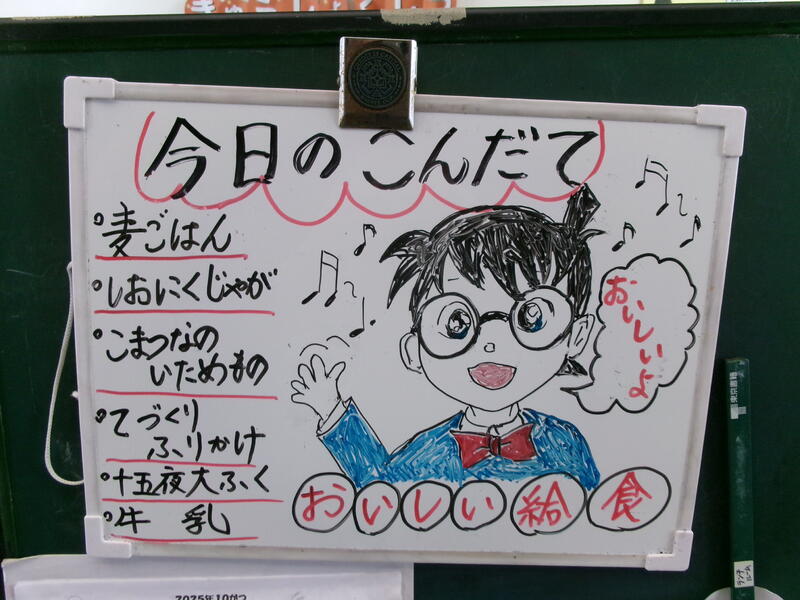 今日のこんだて
麦ごはん
しおにくじゃが
こまつなの
いためもの
てづくり
ふりかけ
十五夜大ふく
牛乳
おいしいよ
おいしい給食
東京書籍
2025年10がつ